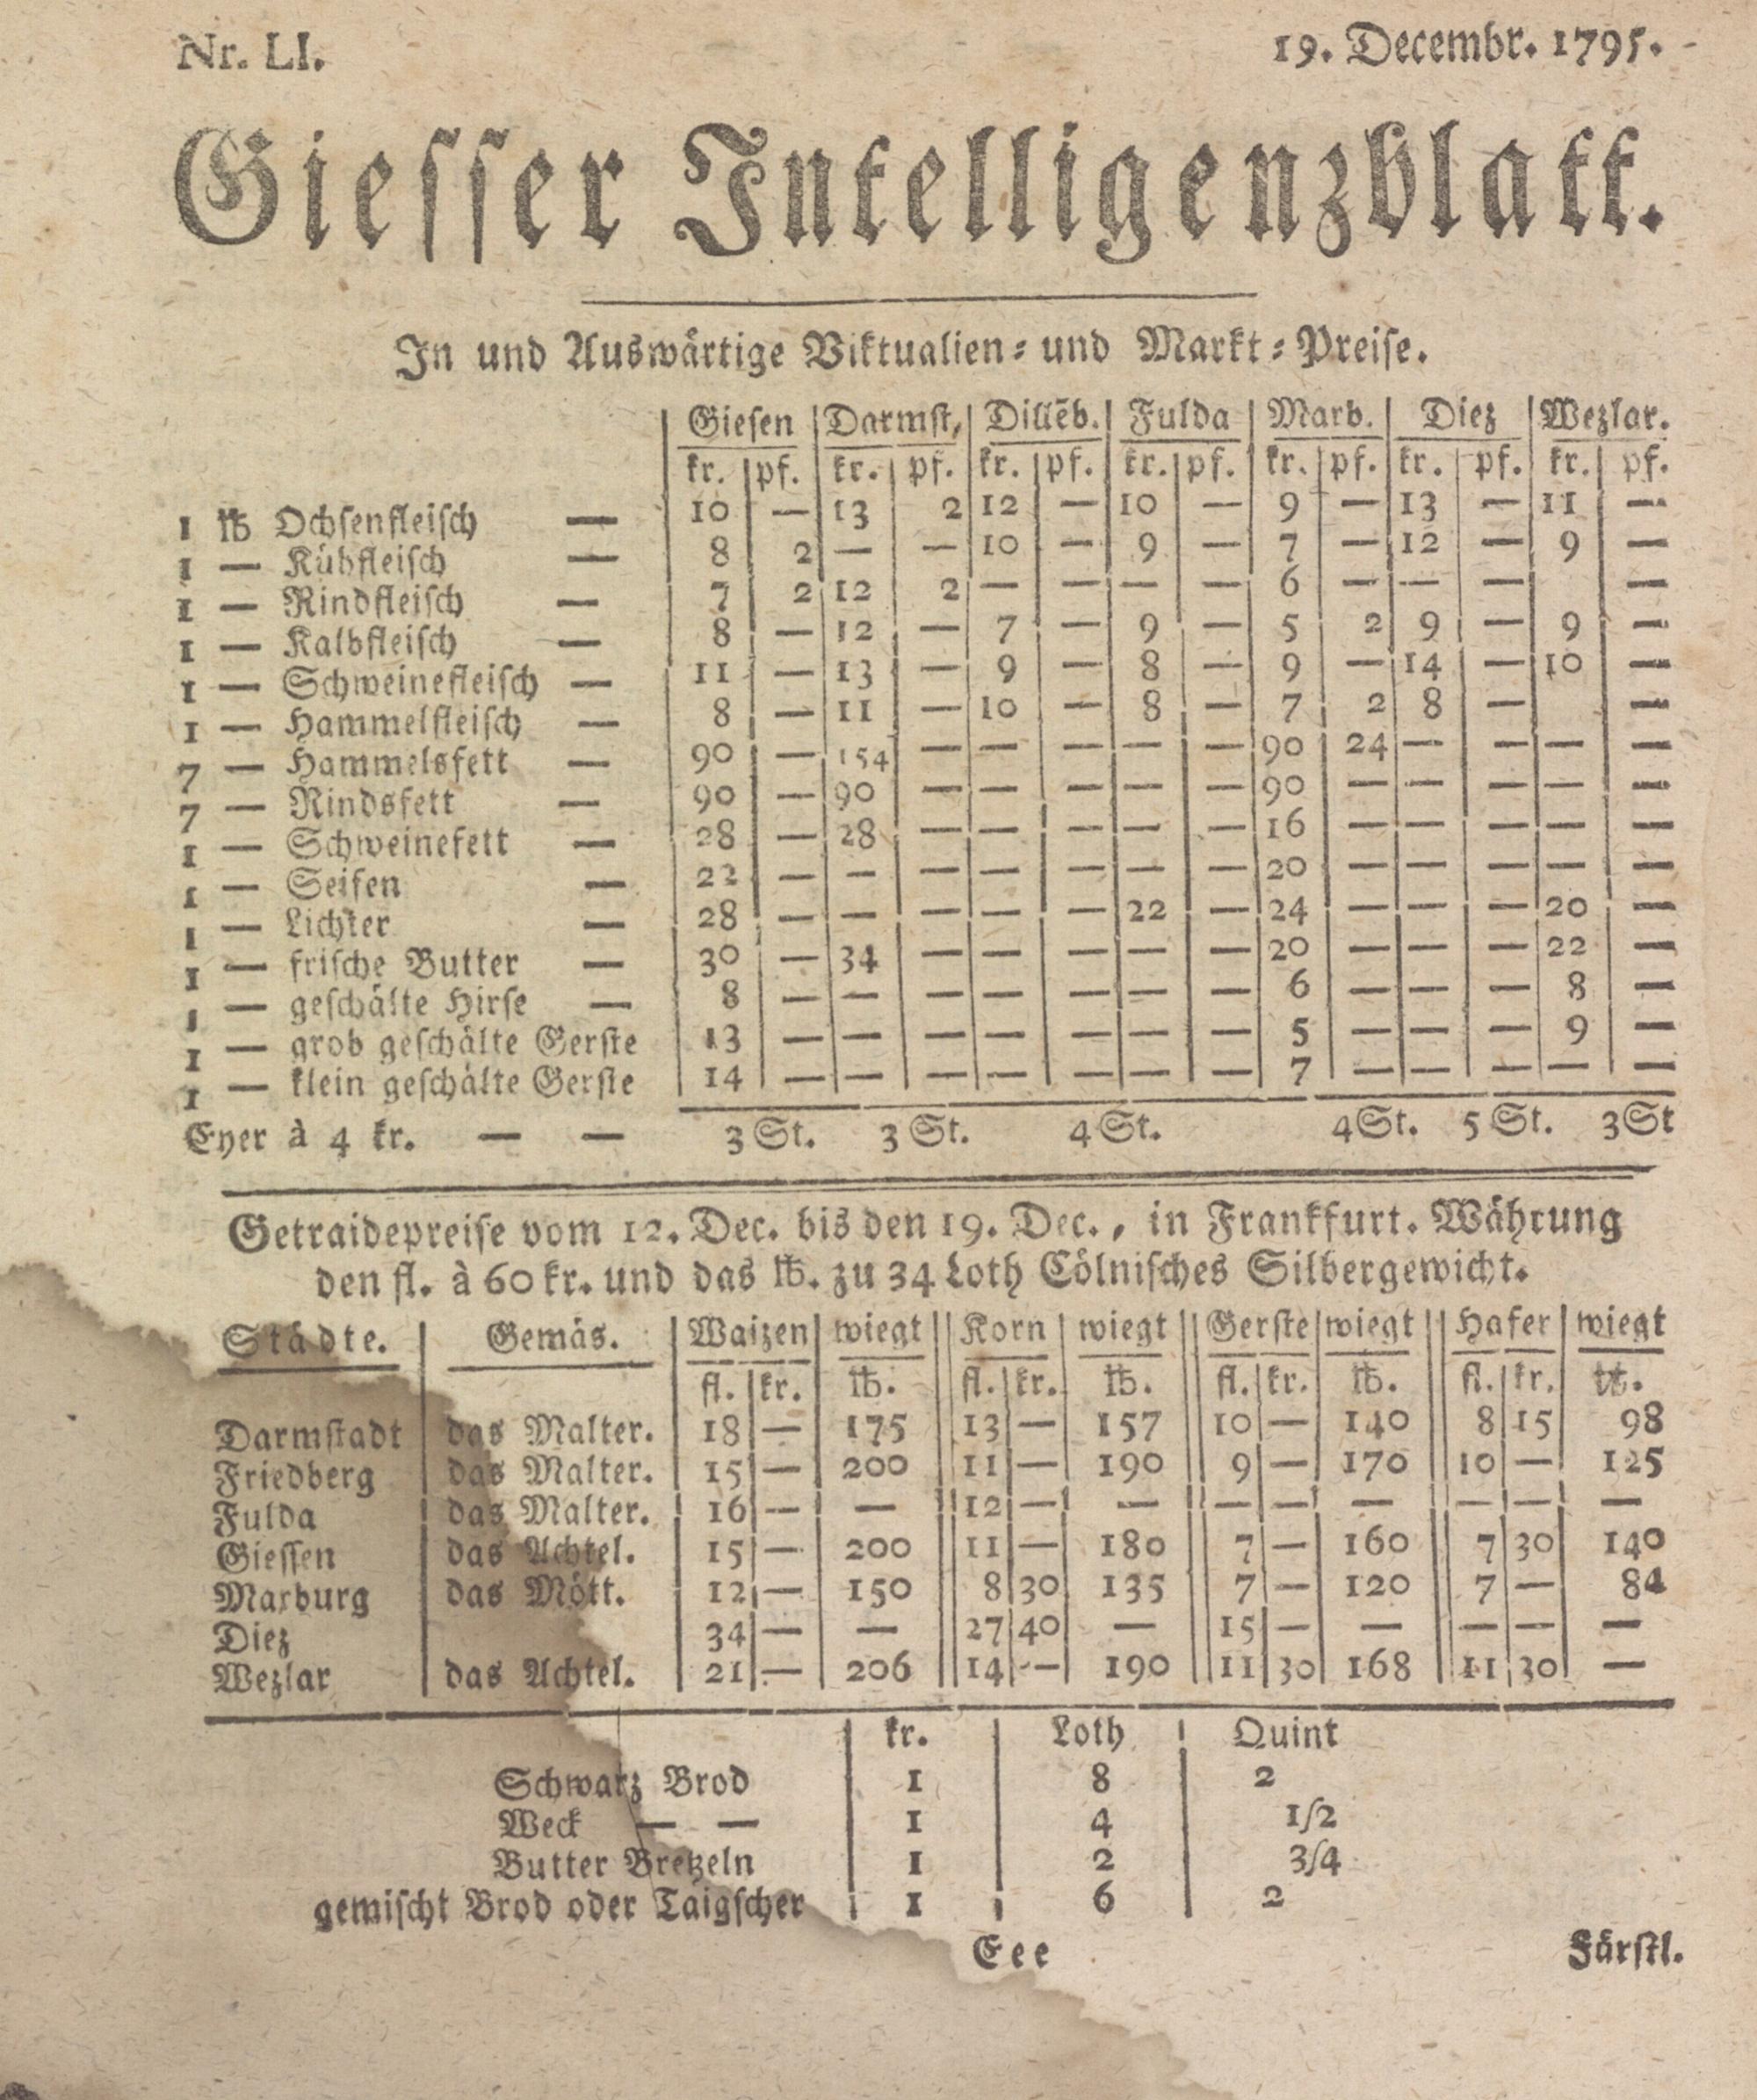 Nr. LI. 19. Decembr. 1795.
Giesser Intelligenzblatt.
In und Auswärtige Viktualien- und Markt-Preise.
Giesen Darmst, Dillēb. Fulda Marb. Diez Wezlar.
kr. pf. kr. pf. kr. pf. kr. pf. kr. pf. kr. pf. kr. pf.
1 ℔ Ochsenfleisch — 10 — 13 2 12 — 10 — 9 — 13 — 11 —
1 — Kühfleisch — 8 2 — — 10 — 9 — 7 — 12 — 9 —
1 — Rindfleisch — 7 2 12 2 — — — — 6 — — — —
1 — Kalbfleisch — 8 — 12 — 7 — 9 — 5 2 9 — 9 —
1 — Schweinefleisch — 11 — 13 — 9 — 8 — 9 — 14 — 10 —
1 — Hammelfleisch — 8 — 11 — 10 — 8 — 7 2 8 — —
7 — Hammelsfett — 90 — 154 — — — — — 90 24 — — — —
7 — Rindsfett — 90 — 90 — — — — — 90 — — — — —
1 — Schweinefett — 28 — 28 — — — — — 16 — — — — —
1 — Seifen — 22 — — — — — — — 20 — — — — —
1 — Lichter — 28 — — — — — 22 — 24 — — — 20 —
1 — frische Butter — 30 — 34 — — — — — 20 — — — 22 —
1 — geschälte Hirse — 8 — — — — — — — 6 — — — 8 —
1 — grob geschälte Gerste 13 — — — — — — — 5 — — — 9 —
1 — klein geschälte Gerste 14 — — — — — — — 7 — — — — —
Eyer à 4 kr. — — 3 St. 3 St. 4 St. 4 St. 5 St. 3 St
Getraidepreise vom 12. Dec. bis den 19. Dec., in Frankfurt. Währung
den fl. à 60 kr. und das ℔. zu 34 Loth Cölnisches Silbergewicht.
Städte. Gemäs. Waizen wiegt Korn wiegt Gerste wiegt Hafer wiegt
fl. kr. ℔. fl. kr. ℔. fl. kr. ℔. fl. kr. ℔.
Darmstadt das Malter. 18 — 175 13 — 157 10 — 140 8 15 98
Friedberg das Malter. 15 — 200 11 — 190 9 — 170 10 — 125
Fulda das Malter. 16 — — 12 — — — — — — — —
Giessen das Achtel. 15 — 200 11 — 180 7 — 160 7 30 140
Marburg das Mött. 12 — 150 8 30 135 7 — 120 7 — 84
Diez 34 — — 27 40 — 15 — — — — —
Wezlar das Achtel. 21 — 206 14 — 190 11 30 168 11 30 —
kr. Loth Quint
Schwarz Brod 1 8 2
Weck — — 1 4 1/2
Butter Bretzeln 1 2 3/4
gemischt Brod oder Taigscher 1 6 2
Eee Färstl.